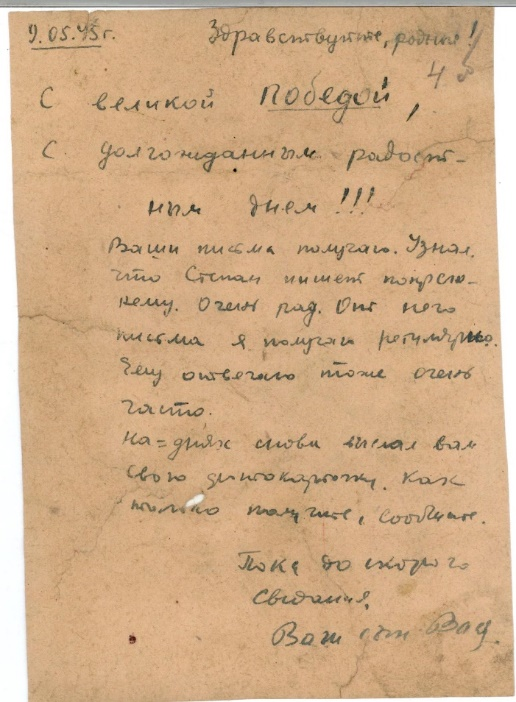 9.05.45г. Здравствуйте, родные!
48
С великой Победой,
С долгожданным радост-
ным днем!!!
Ваши писма получаю. Узнал,
что Степан пишет попреж-
нему. Очень рад. От него
писма я получаю регулярно.
Ему отвечаю тоже очень
часто.
На=днях снова выслал вам
свою фотокарточку. Как
только получите, сообщите.
Пока до скорого
свидания.
Ваш сын Вад.